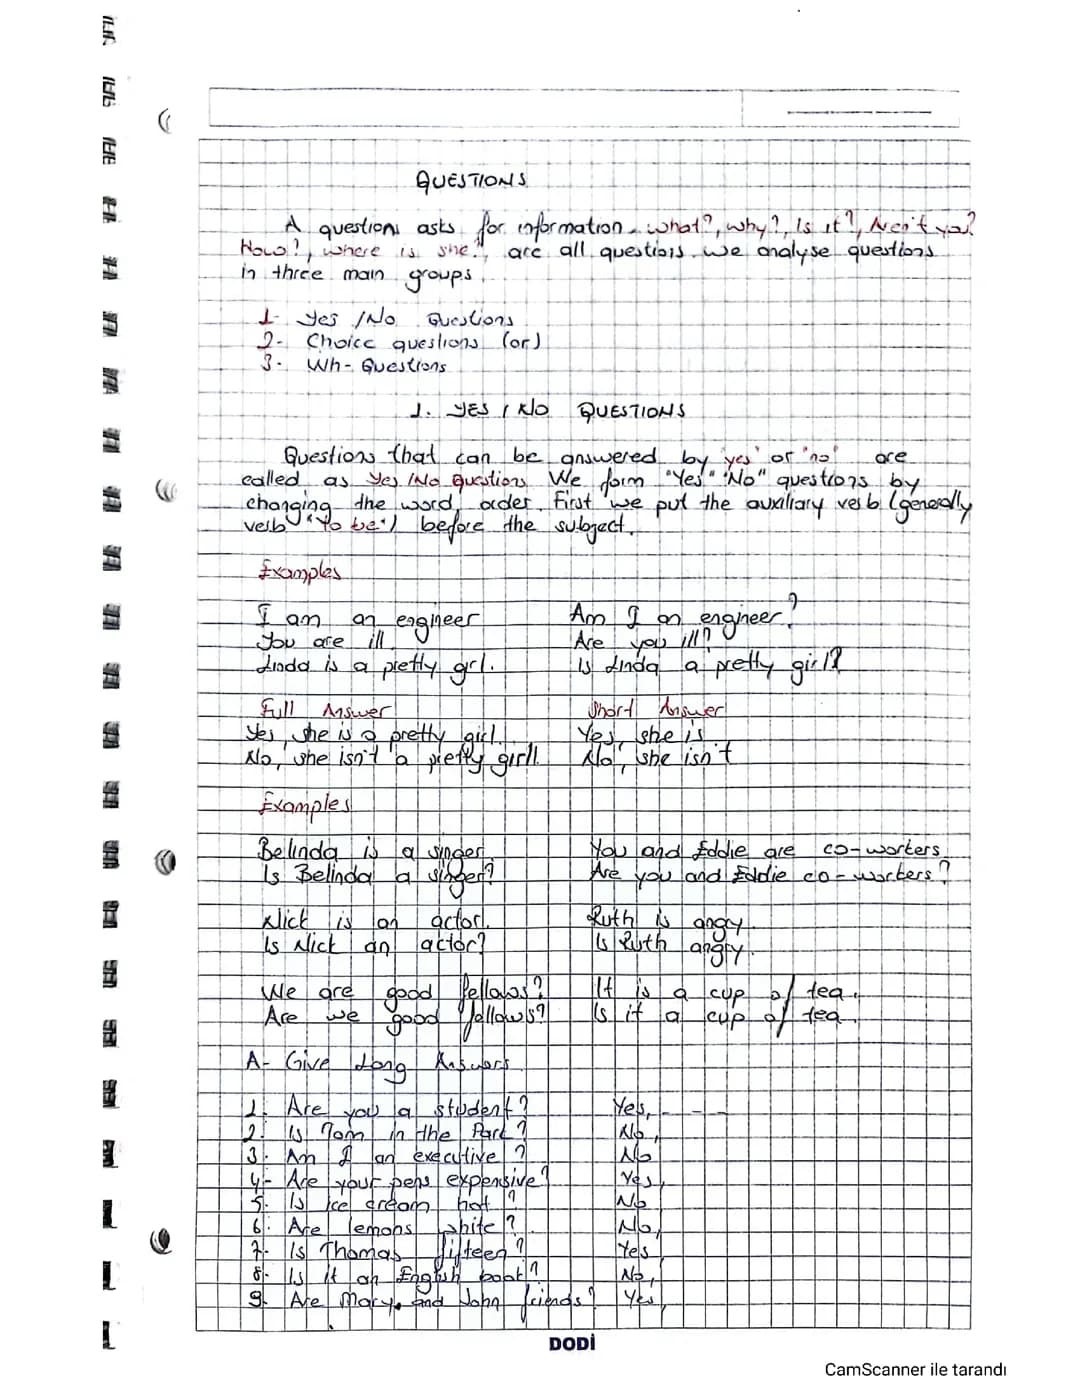 QUESTIONS
A question asks for information. what?, why?, Is it?, Aren't you?
How?, where is she?, are all questions. we analyse questions
in three main groups.
1- Yes /No Questions
2- Choice questions (or)
3- Wh- Questions
1. YES / NO QUESTIONS
Questions that can be answered by 'yes' or 'no' are
called as Yes /No Question. We form "Yes" "No" questions by
changing the word order. First we put the auxiliary verb (generally
verb "to be") before the subject.
Examples
I am an engineer Am I an engineer?
You are ill. Are you ill?
Linda is a pretty girl. Is Linda a pretty girl?
Full Answer Short Answer
Yes, she is a pretty girl. Yes, she is.
No, she isn't a pretty girl. No, she isn't
Examples
Belinda is a singer. You and Eddie are co-workers
Is Belinda a singer? Are you and Eddie co-workers?
Nick is an actor. Ruth is angry.
Is Nick an actor? Is Ruth angry.
We are good fellows? It is a cup of tea.
Are we good fellows? Is it a cup of tea.
A- Give Long Answers
1. Are you a student? Yes, - - -
2. Is Tom in the Park? No,
3. Am I an executive? No
4- Are your pens expensive? Yes,
5. Is ice cream hot? No
6. Are lemons white? No,
7. Is Thomas fifteen? Yes
8. Is it an English book? No,
9. Are Mary and John friends? Yes,
DODİ
CamScanner ile tarandı